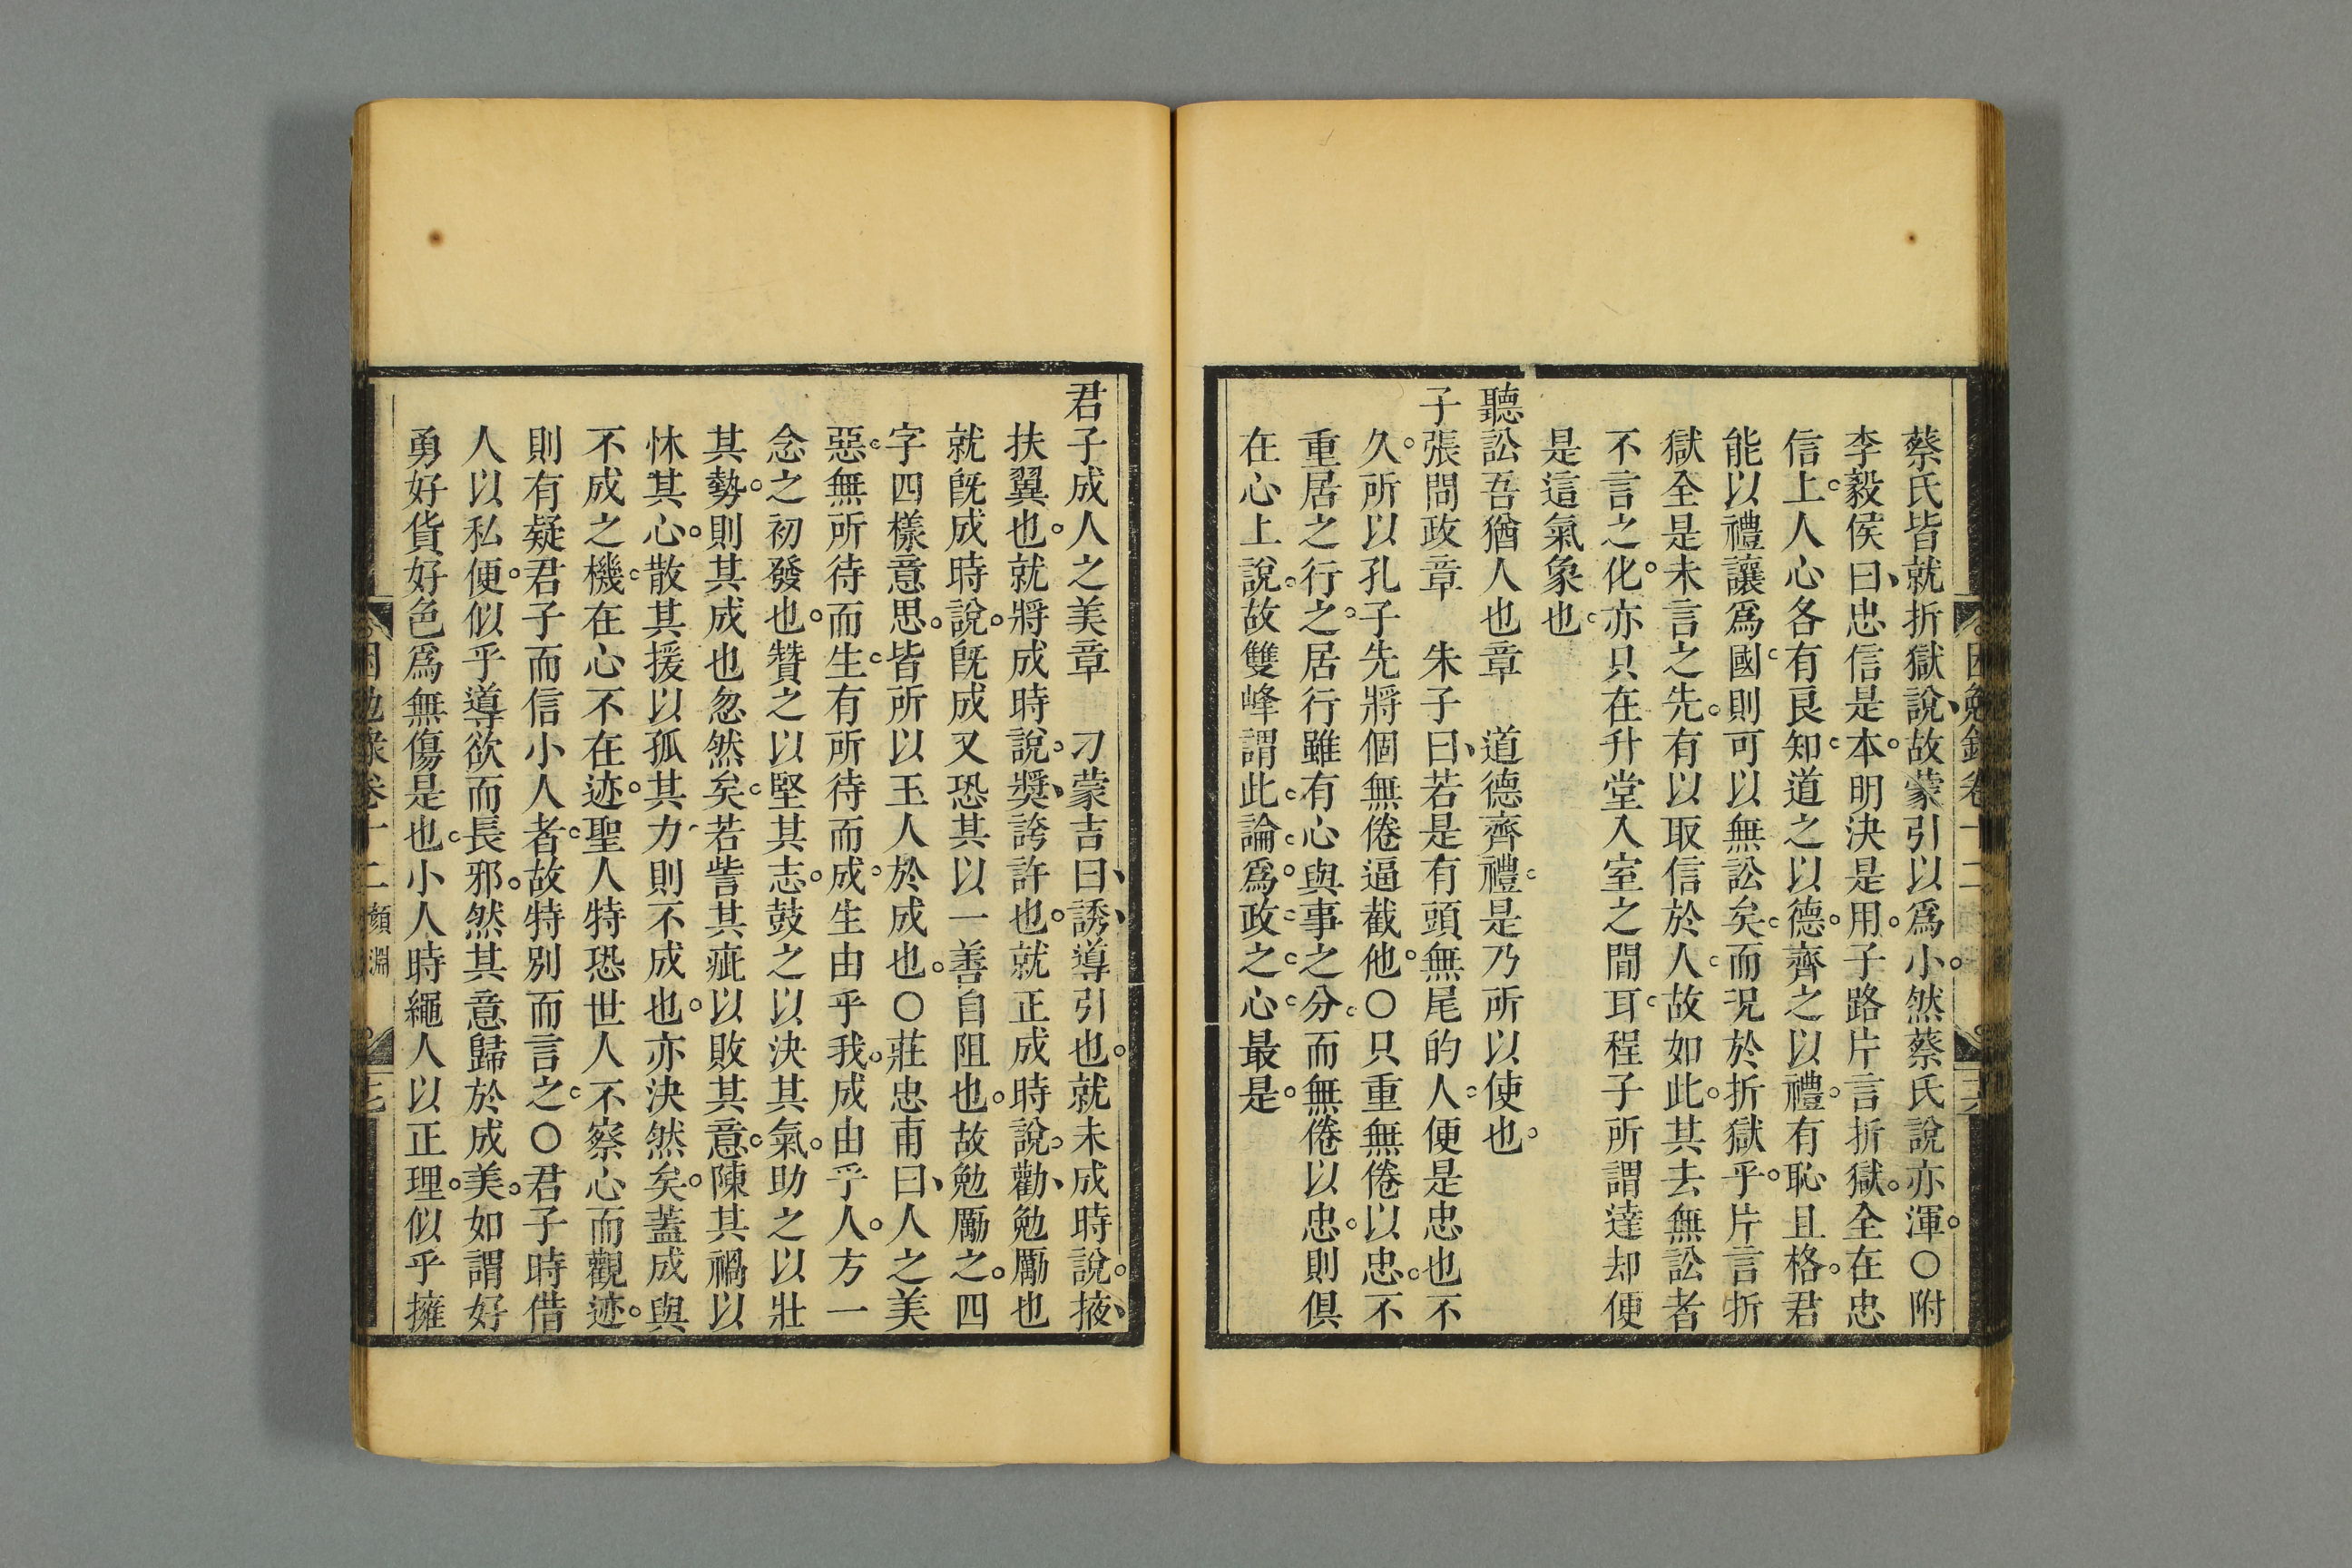 蔡氏皆就折獄說故蒙引以爲小然蔡氏說亦渾○附
李毅侯曰忠信是本明決是用子路片言折獄全在忠
信上人心各有良知道之以德齊之以禮有恥且格君
能以禮讓爲國則可以無訟矣而况於折獄乎片言折
獄全是未言之先有以取信於人故如此其去無訟者
不言之化亦只在升堂入室之間耳程子所謂達却便
是這氣象也
聽訟吾猶人也章　道德齊禮是乃所以使也
子張問政章　朱子曰若是有頭無尾的人便是忠也不
久所以孔子先將個無倦逼截他○只重無倦以忠不
重居之行之居行雖有心與事之分而無倦以忠則俱
在心上說故雙峰謂此論爲政之心最是
君子成人之美章　刁蒙吉曰誘導引也就未成時說掖
扶翼也就將成時說奬誇許也就正成時說勸勉勵也
就旣成時說旣成又恐其以一善自阻也故勉勵之四
字四樣意思皆所以玉人於成也○莊忠甫曰人之美
惡無所待而生有所待而成生由乎我成由乎人方一
念之初發也贊之以堅其志鼓之以決其氣助之以壯
其勢則其成也忽然矣若訾其疵以敗其意陳其禍以
怵其心散其援以孤其力則不成也亦決然矣蓋成與
不成之機在心不在迹聖人特恐世人不察心而觀迹
則有疑君子而信小人者故特別而言之○君子時借
人以私便似乎導欲而長邪然其意歸於成美如謂好
勇好貨好色爲無傷是也小人時繩人以正理似乎擁
困勉錄卷十二 顏淵